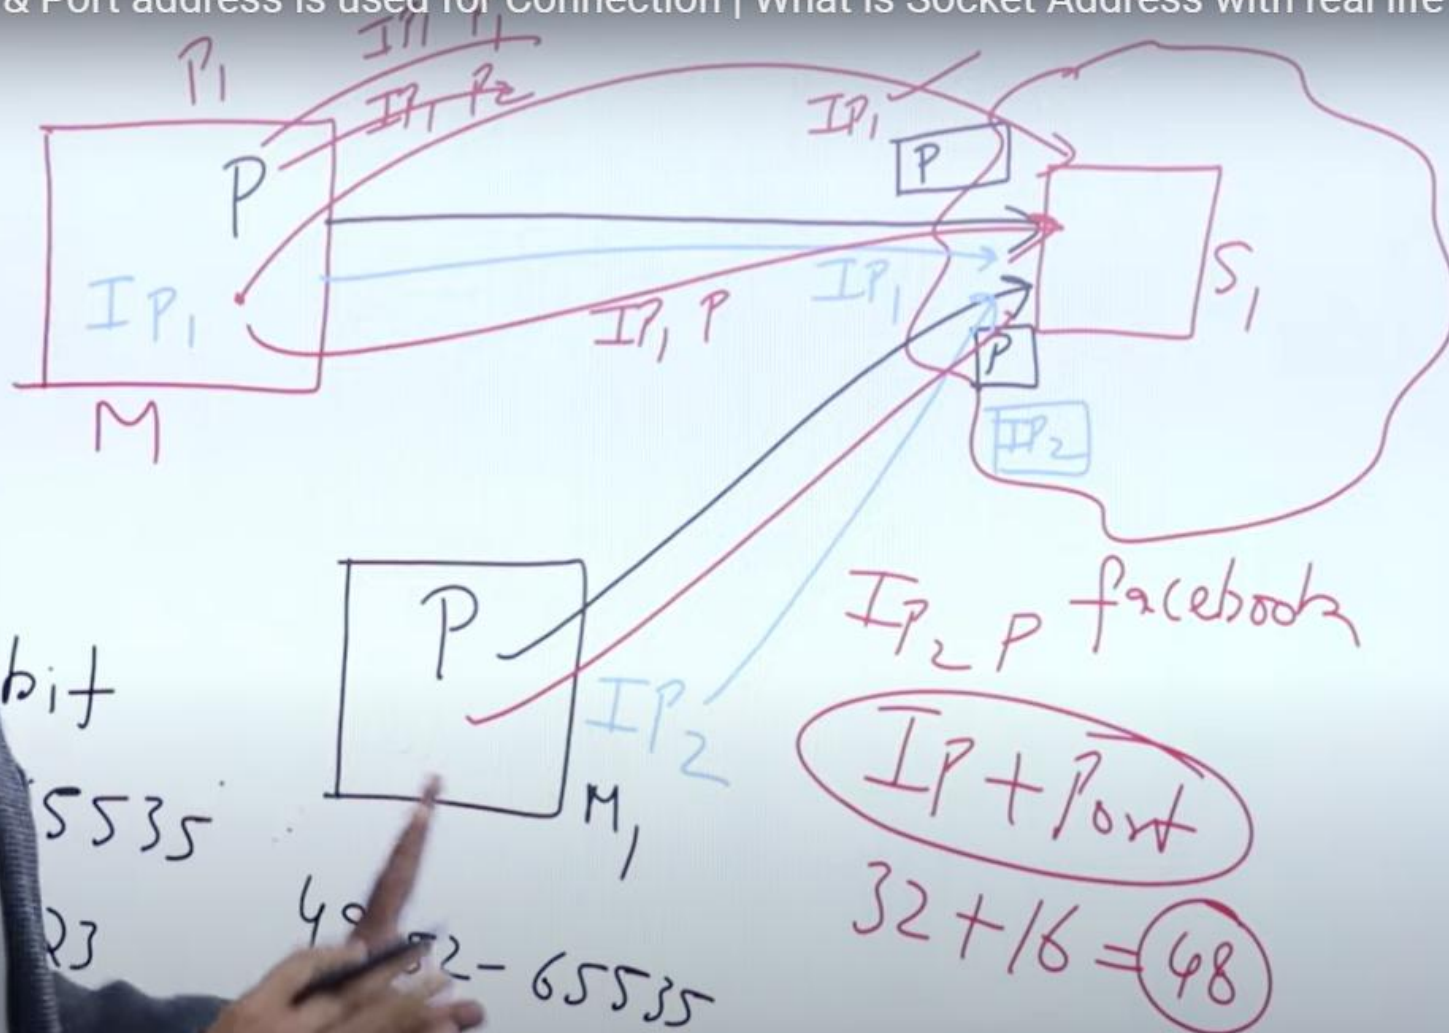 & Port address is used for Connection | What is Socket Address with real life
P1
IP1 P1
IP1 P2
P
IP1
M
IP1
P
IP1
IP1 P
S1
P
IP2
P
IP2
M1
IP2 P facebook
IP + Port
32 + 16 = 48
bit
5535
23
- 65535